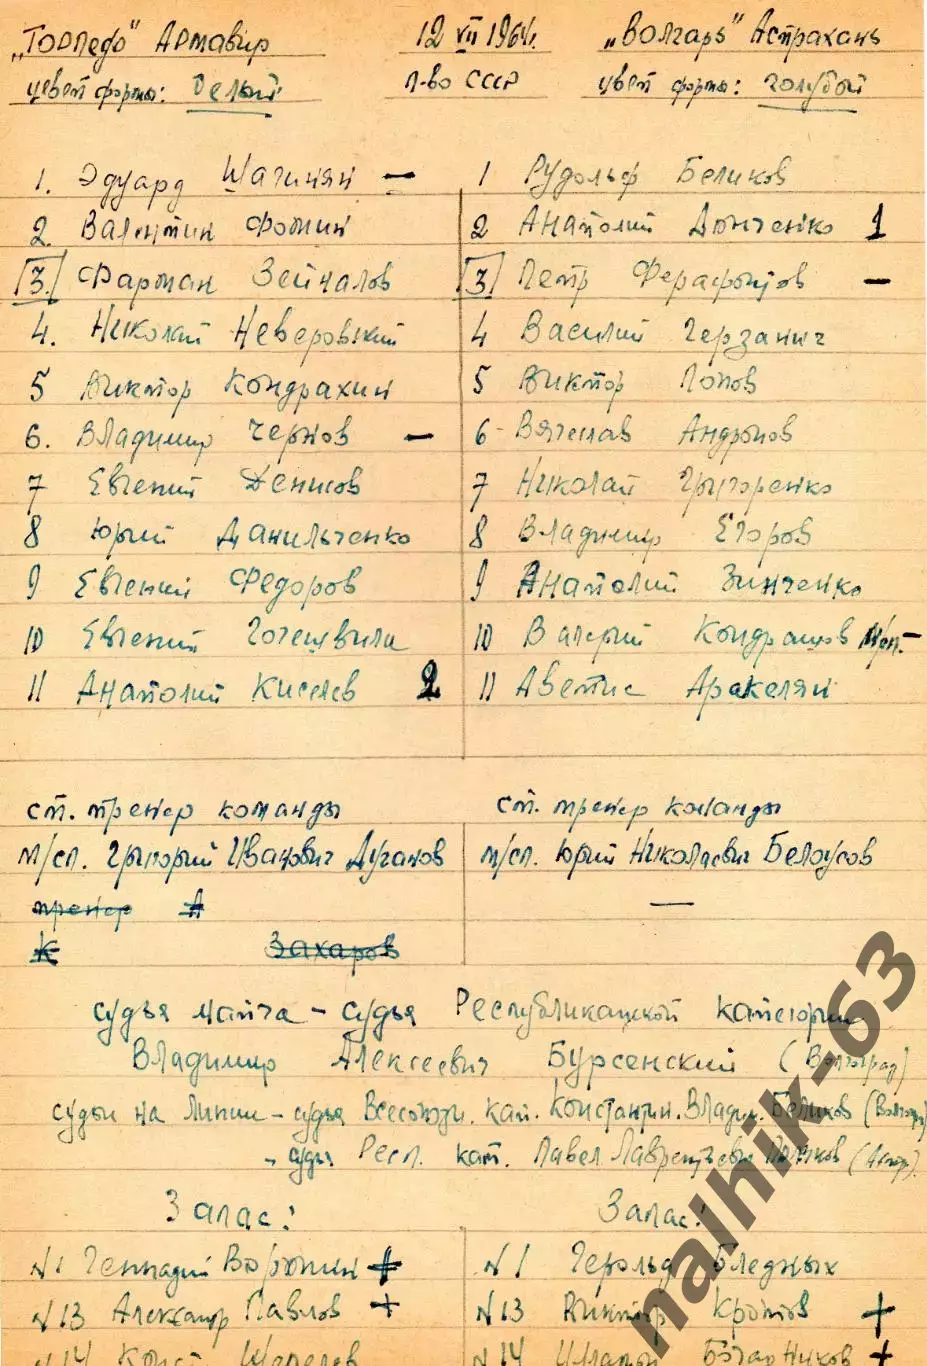 „Торпедо" Армавир 12 VII 1964г. „Волгарь" Астрахань
цвет формы: белый п-во СССР цвет формы: голубой
1. Эдуард Шагинян – 1 Рудольф Беликов
2. Валентин Фомин 2 Анатолий Дынченко 1
3. Фарман Зейналов 3 Петр Ферафонтов –
4. Николай Неверовский 4 Василий Герзанич
5 Виктор Кондрахин 5 Виктор Попов
6. Владимир Чернов – 6 Вячеслав Андронов
7 Евгений Денисов 7 Николай Григоренко
8 Юрий Данильченко 8 Владимир Егоров
9 Евгений Федоров 9 Анатолий Зинченко
10 Евгений Гогешвили 10 Валерий Кондрашов
11 Анатолий Киселев 2 11 Аветис Аракелян
ст. тренер команды ст. тренер команды
м/сп. Григорий Иванович Дуганов м/сп. Юрий Николаевич Белоусов
тренер А —
К Захаров
судья матча – судья Республиканской категории
Владимир Алексеевич Бурсенский (Волгоград)
судьи на линии – судья Всесоюзн. кат. Константин. Владим. Беликов
- судья Респ. кат. Павел Лаврентьевич
Запас! Запас!
N1 Геннадий Воронин + N1 Герольд Бледных
N13 Александр Павлов + N13 Виктор Кротов +
N14 Конст. Шепелев N14 +
nalhik-63